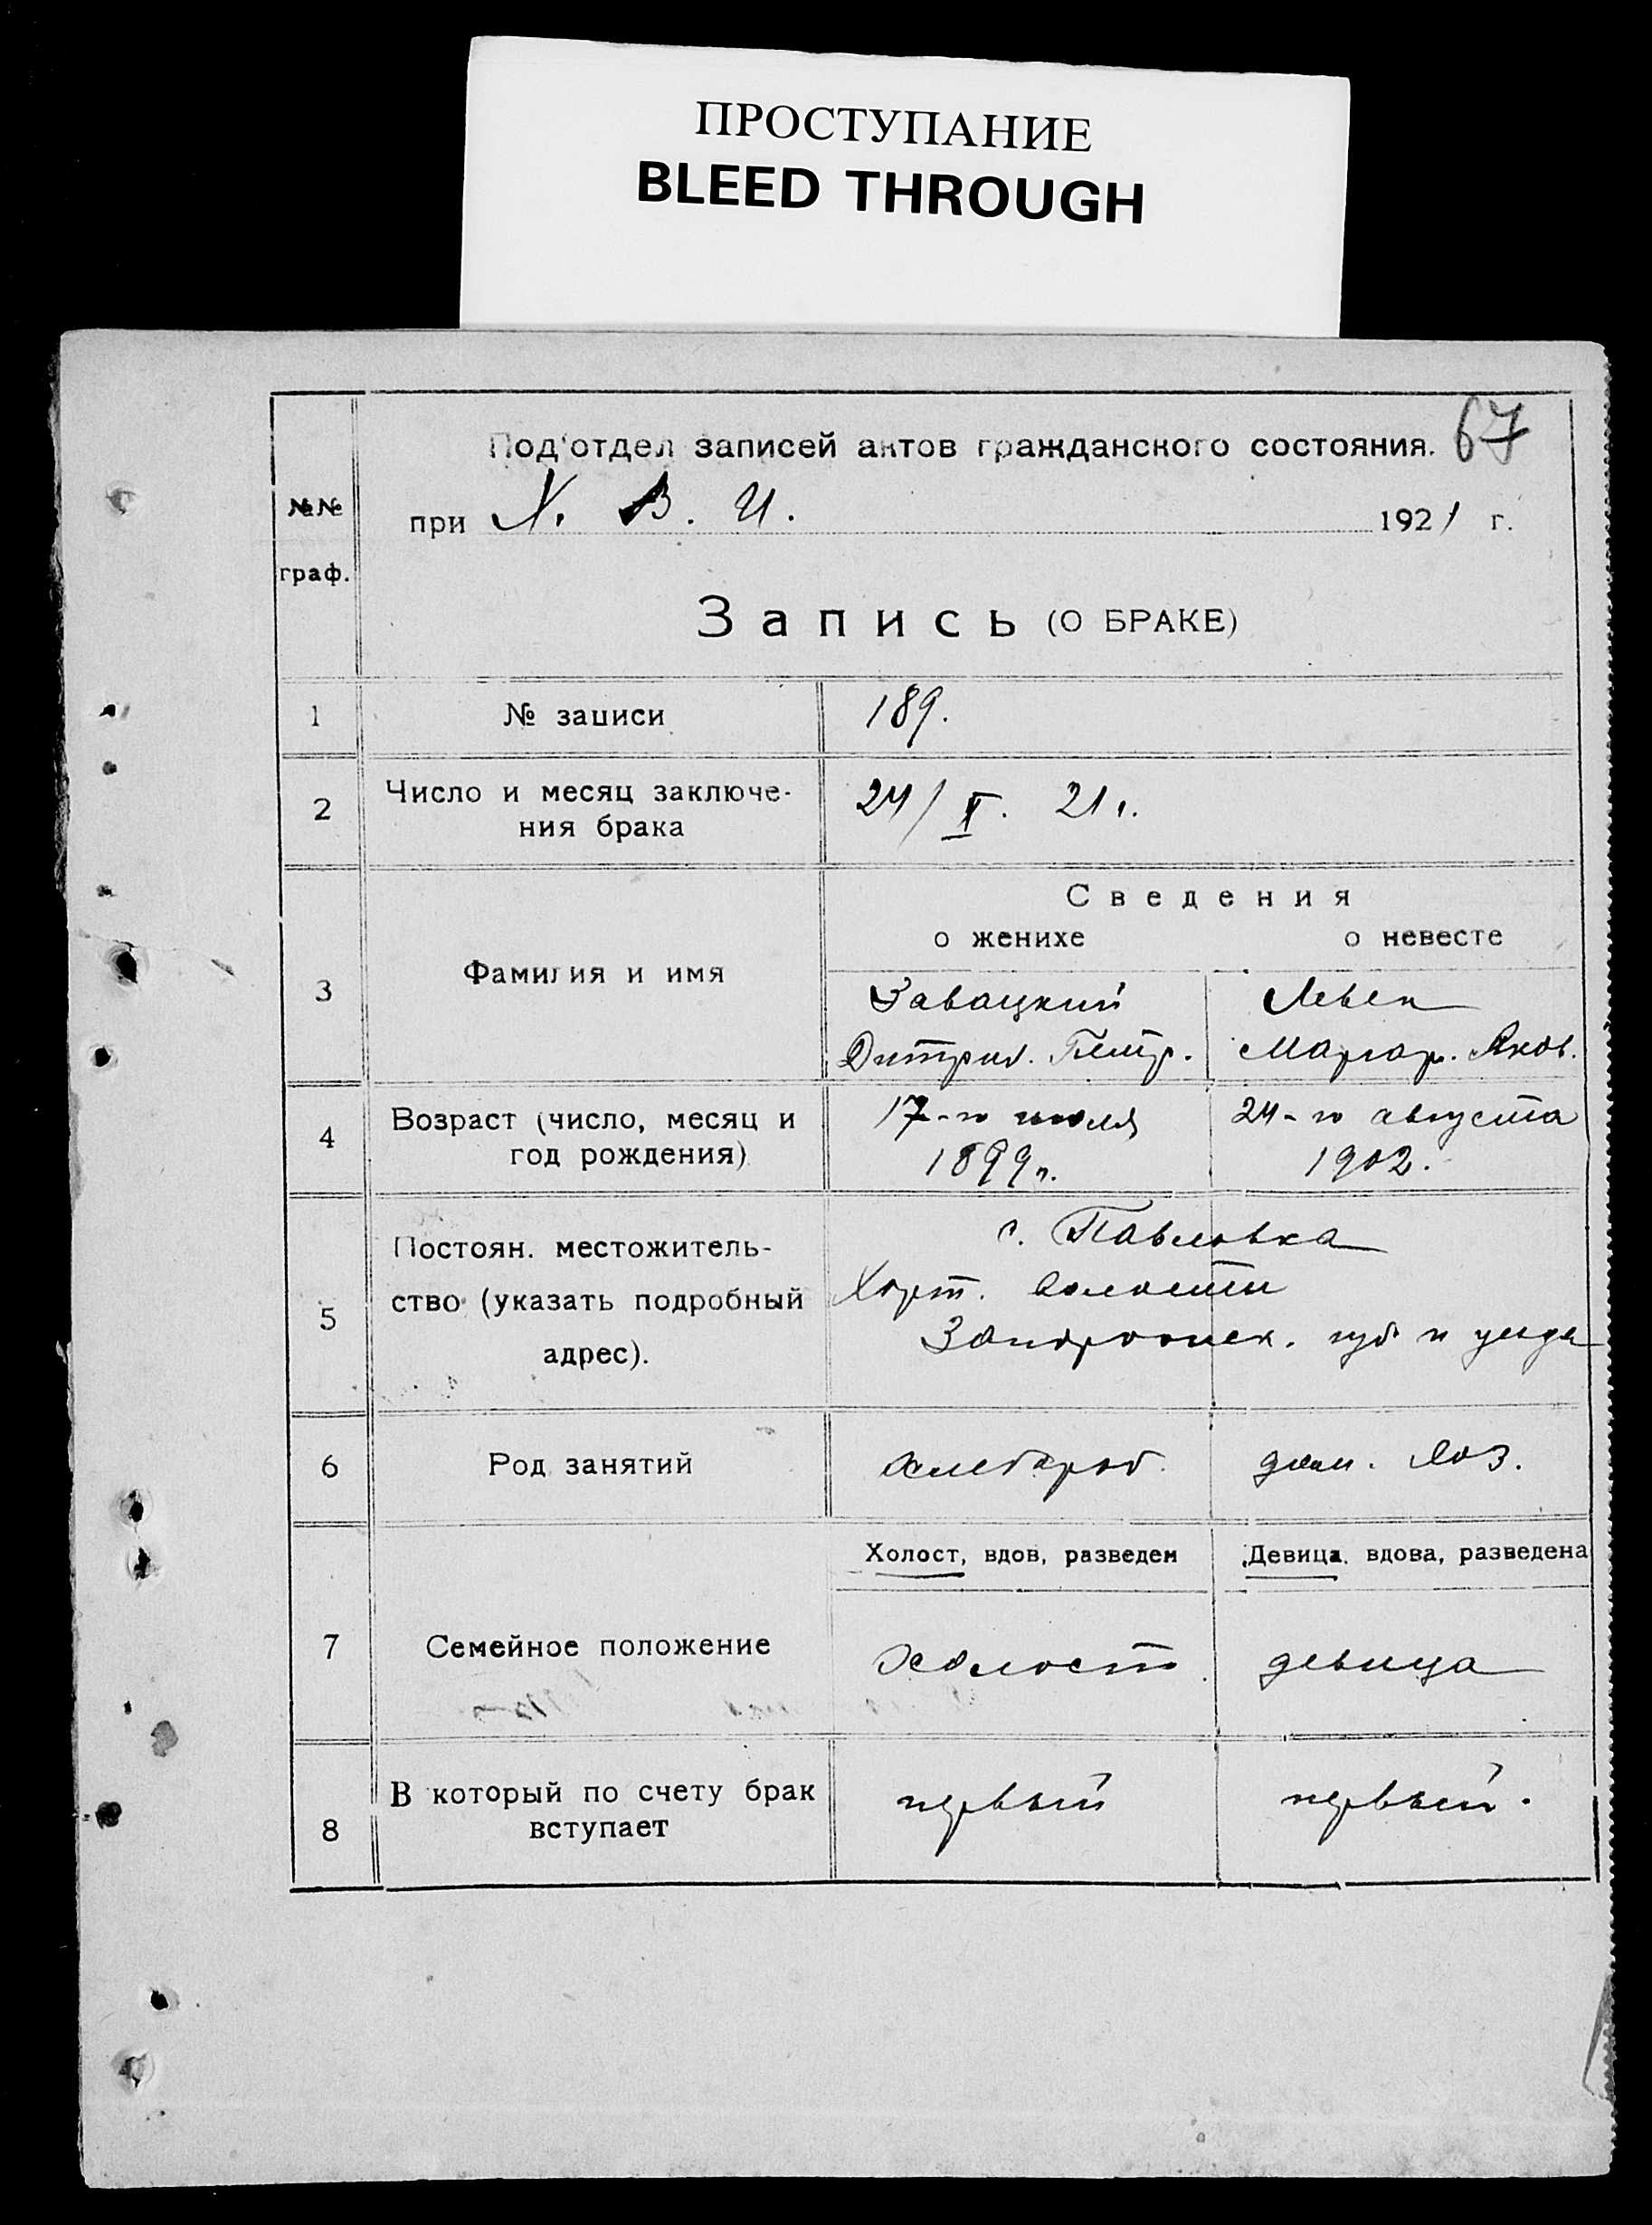 ПРОСТУПАНИЕ
BLEED THROUGH
67
Под'отдел записей актов гражданского состояния.
№№ граф.
при Х. В. И. 1921 г.
Запись (О БРАКЕ)
1 № записи 189.
2 Число и месяц заключе-
ния брака
24/V. 21 г.
Сведения
о женихе о невесте
3 Фамилия и имя
Завацкий Левен
Дитрих. Петр. Маргар. Яков.
4 Возраст (число, месяц и
год рождения)
17-го июля 24-го августа
1899 г. 1902.
5 Постоян. местожитель-
ство (указать подробный
адрес).
с. Павловка
Хорт. волости
Запорожск. губ и уезда
6 Род занятий
хлебороб. дом. хоз.
Холост, вдов, разведен Девица, вдова, разведена
7 Семейное положение
холост. девица
8 В который по счету брак
вступает
первый первый.